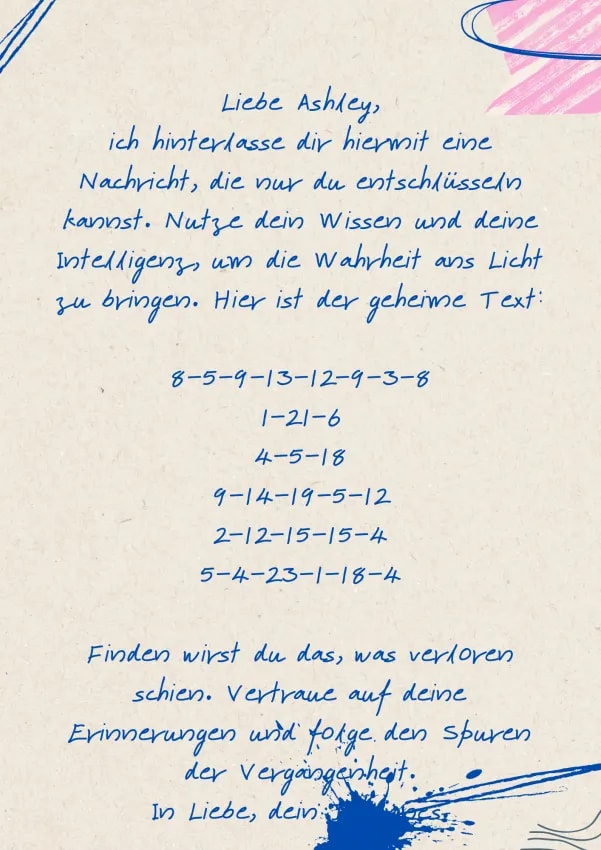 Liebe Ashley,
ich hinterlasse dir hiermit eine
Nachricht, die nur du entschlüsseln
kannst. Nutze dein Wissen und deine
Intelligenz, um die Wahrheit ans Licht
zu bringen. Hier ist der geheime Text:
8-5-9-13-12-9-3-8
1-21-6
4-5-18
9-14-19-5-12
2-12-15-15-4
5-4-23-1-18-4
Finden wirst du das, was verloren
schien. Vertraue auf deine
Erinnerungen und folge den Spuren
der Vergangenheit.
In Liebe, dein